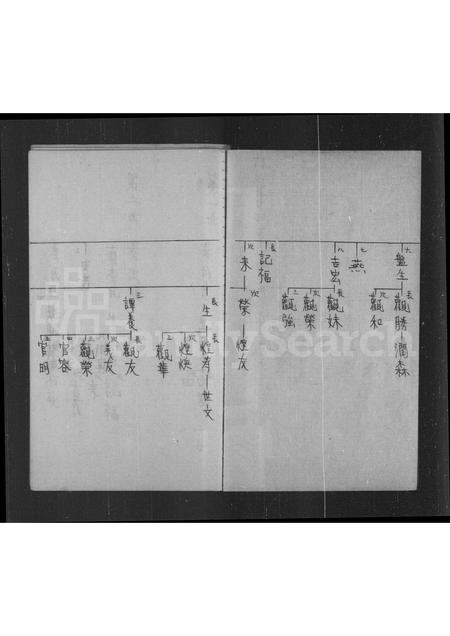 六 盤生 長 觀勝 潤森
次 觀和
七 燕
八 吉宏 長 觀妹
次 觀榮
三 觀強
長 記福
次 來 次 榮 煌友
長 生 長 煌芳 世文
次 煌煥
三 觀華
三 譚養 長 觀友
次 美友
三 觀榮
四 官容
五 官明
FamilySearch